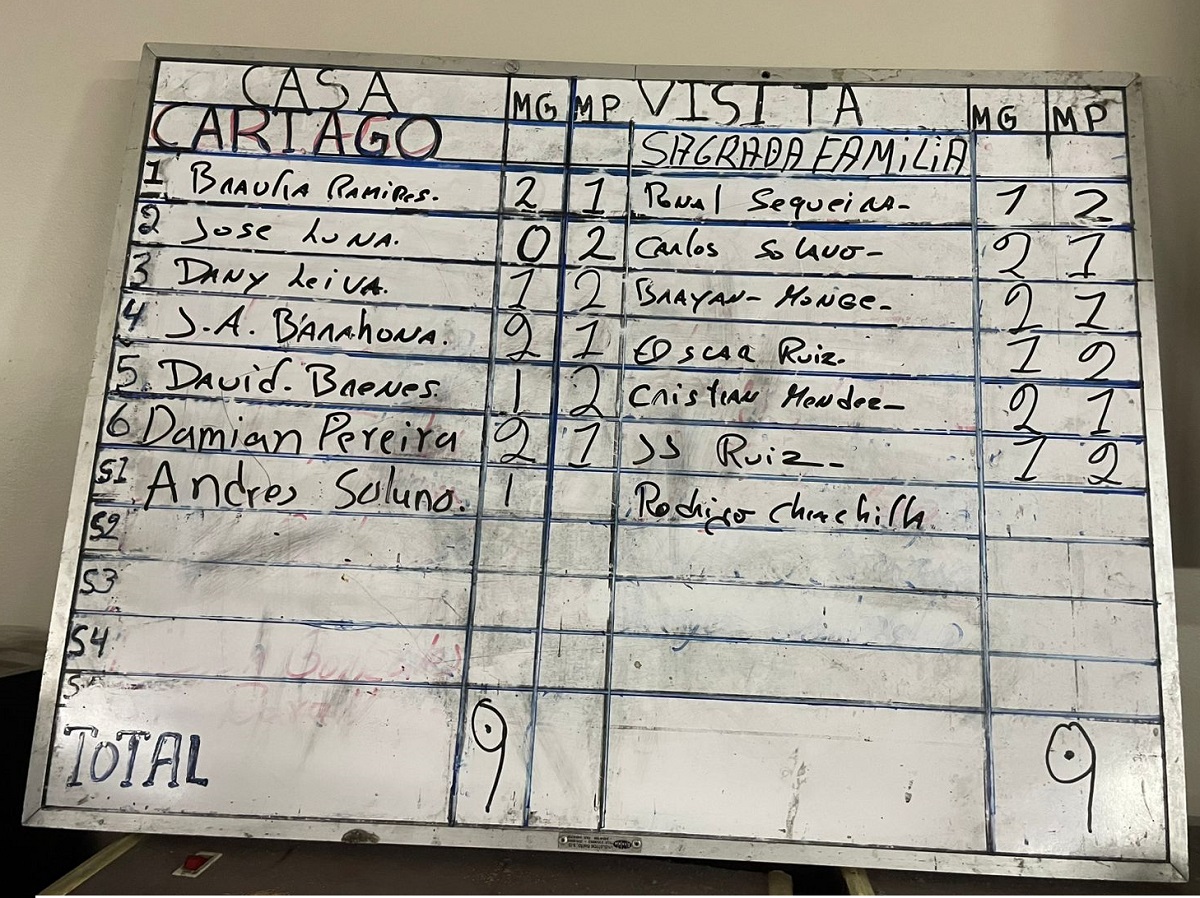 CASA MG MP VISITA MG MP
CARTAGO SAGRADA FAMILIA
1 Braulia Ramires. 2 1 Ronal Sequeira- 1 2
2 Jose Luna. 0 2 Carlos Solano- 2 1
3 Dany Leiva. 1 2 Brayan- Monge- 2 1
4 J.A. Barahona. 2 1 Oscar Ruiz. 1 2
5. David. Brenes. 1 2 Cristian Mendez- 2 1
6 Damian Pereira 2 1 JJ Ruiz- 1 2
S1 Andres Soluno. 1 Rodrigo
S2
S3
S4
TOTAL 9 9